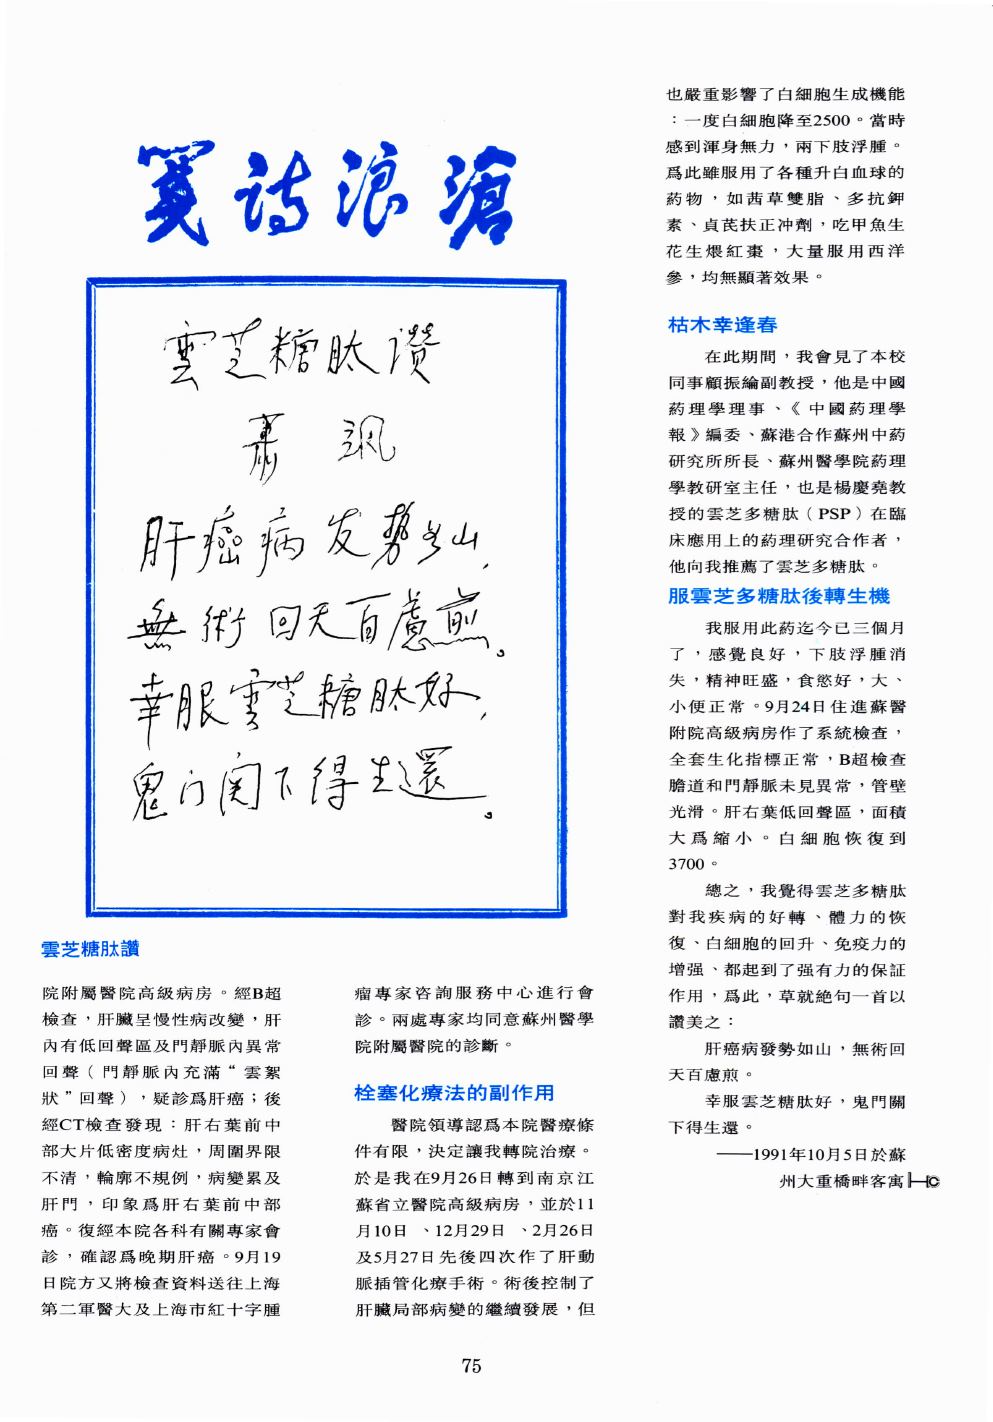 滄浪詩箋
雲芝糖肽讚
肅 諷
肝癌病发勢如山,
無術回天百慮煎。
幸服雲芝糖肽好,
鬼门関下得生還。
雲芝糖肽讚
院附屬醫院高級病房。經B超
檢查，肝臟呈慢性病改變，肝
內有低回聲區及門靜脈內異常
回聲（門靜脈內充滿“雲絮
狀”回聲），疑診爲肝癌；後
經CT檢查發現：肝右葉前中
部大片低密度病灶，周圍界限
不清，輪廓不規例，病變累及
肝門，印象爲肝右葉前中部
癌。復經本院各科有關專家會
診，確認爲晚期肝癌。9月19
日院方又將檢查資料送往上海
第二軍醫大及上海市紅十字腫
瘤專家咨詢服務中心進行會
診。兩處專家均同意蘇州醫學
院附屬醫院的診斷。
栓塞化療法的副作用
醫院領導認爲本院醫療條
件有限，決定讓我轉院治療。
於是我在9月26日轉到南京江
蘇省立醫院高級病房，並於11
月10日、12月29日、2月26日
及5月27日先後四次作了肝動
脈插管化療手術。術後控制了
肝臟局部病變的繼續發展，但
也嚴重影響了白細胞生成機能
：一度白細胞降至2500。當時
感到渾身無力，兩下肢浮腫。
爲此雖服用了各種升白血球的
葯物，如茜草雙脂、多抗鉀
素、貞芪扶正冲劑，吃甲魚生
花生煨紅棗，大量服用西洋
參，均無顯著效果。
枯木幸逢春
在此期間，我會見了本校
同事顧振綸副教授，他是中國
葯理學理事、《中國葯理學
報》編委、蘇港合作蘇州中葯
研究所所長、蘇州醫學院葯理
學教研室主任，也是楊慶堯教
授的雲芝多糖肽（PSP）在臨
床應用上的葯理研究合作者，
他向我推薦了雲芝多糖肽。
服雲芝多糖肽後轉生機
我服用此葯迄今已三個月
了，感覺良好，下肢浮腫消
失，精神旺盛，食慾好，大、
小便正常。9月24日住進蘇醫
附院高級病房作了系統檢查，
全套生化指標正常，B超檢查
膽道和門靜脈未見異常，管壁
光滑。肝右葉低回聲區，面積
大爲縮小。白細胞恢復到
3700。
總之，我覺得雲芝多糖肽
對我疾病的好轉、體力的恢
復、白細胞的回升、免疫力的
增强、都起到了强有力的保証
作用，爲此，草就絶句一首以
讚美之：
肝癌病發勢如山，無術回
天百慮煎。
幸服雲芝糖肽好，鬼門關
下得生還。
——1991年10月5日於蘇
州大重橋畔客寓HC
75